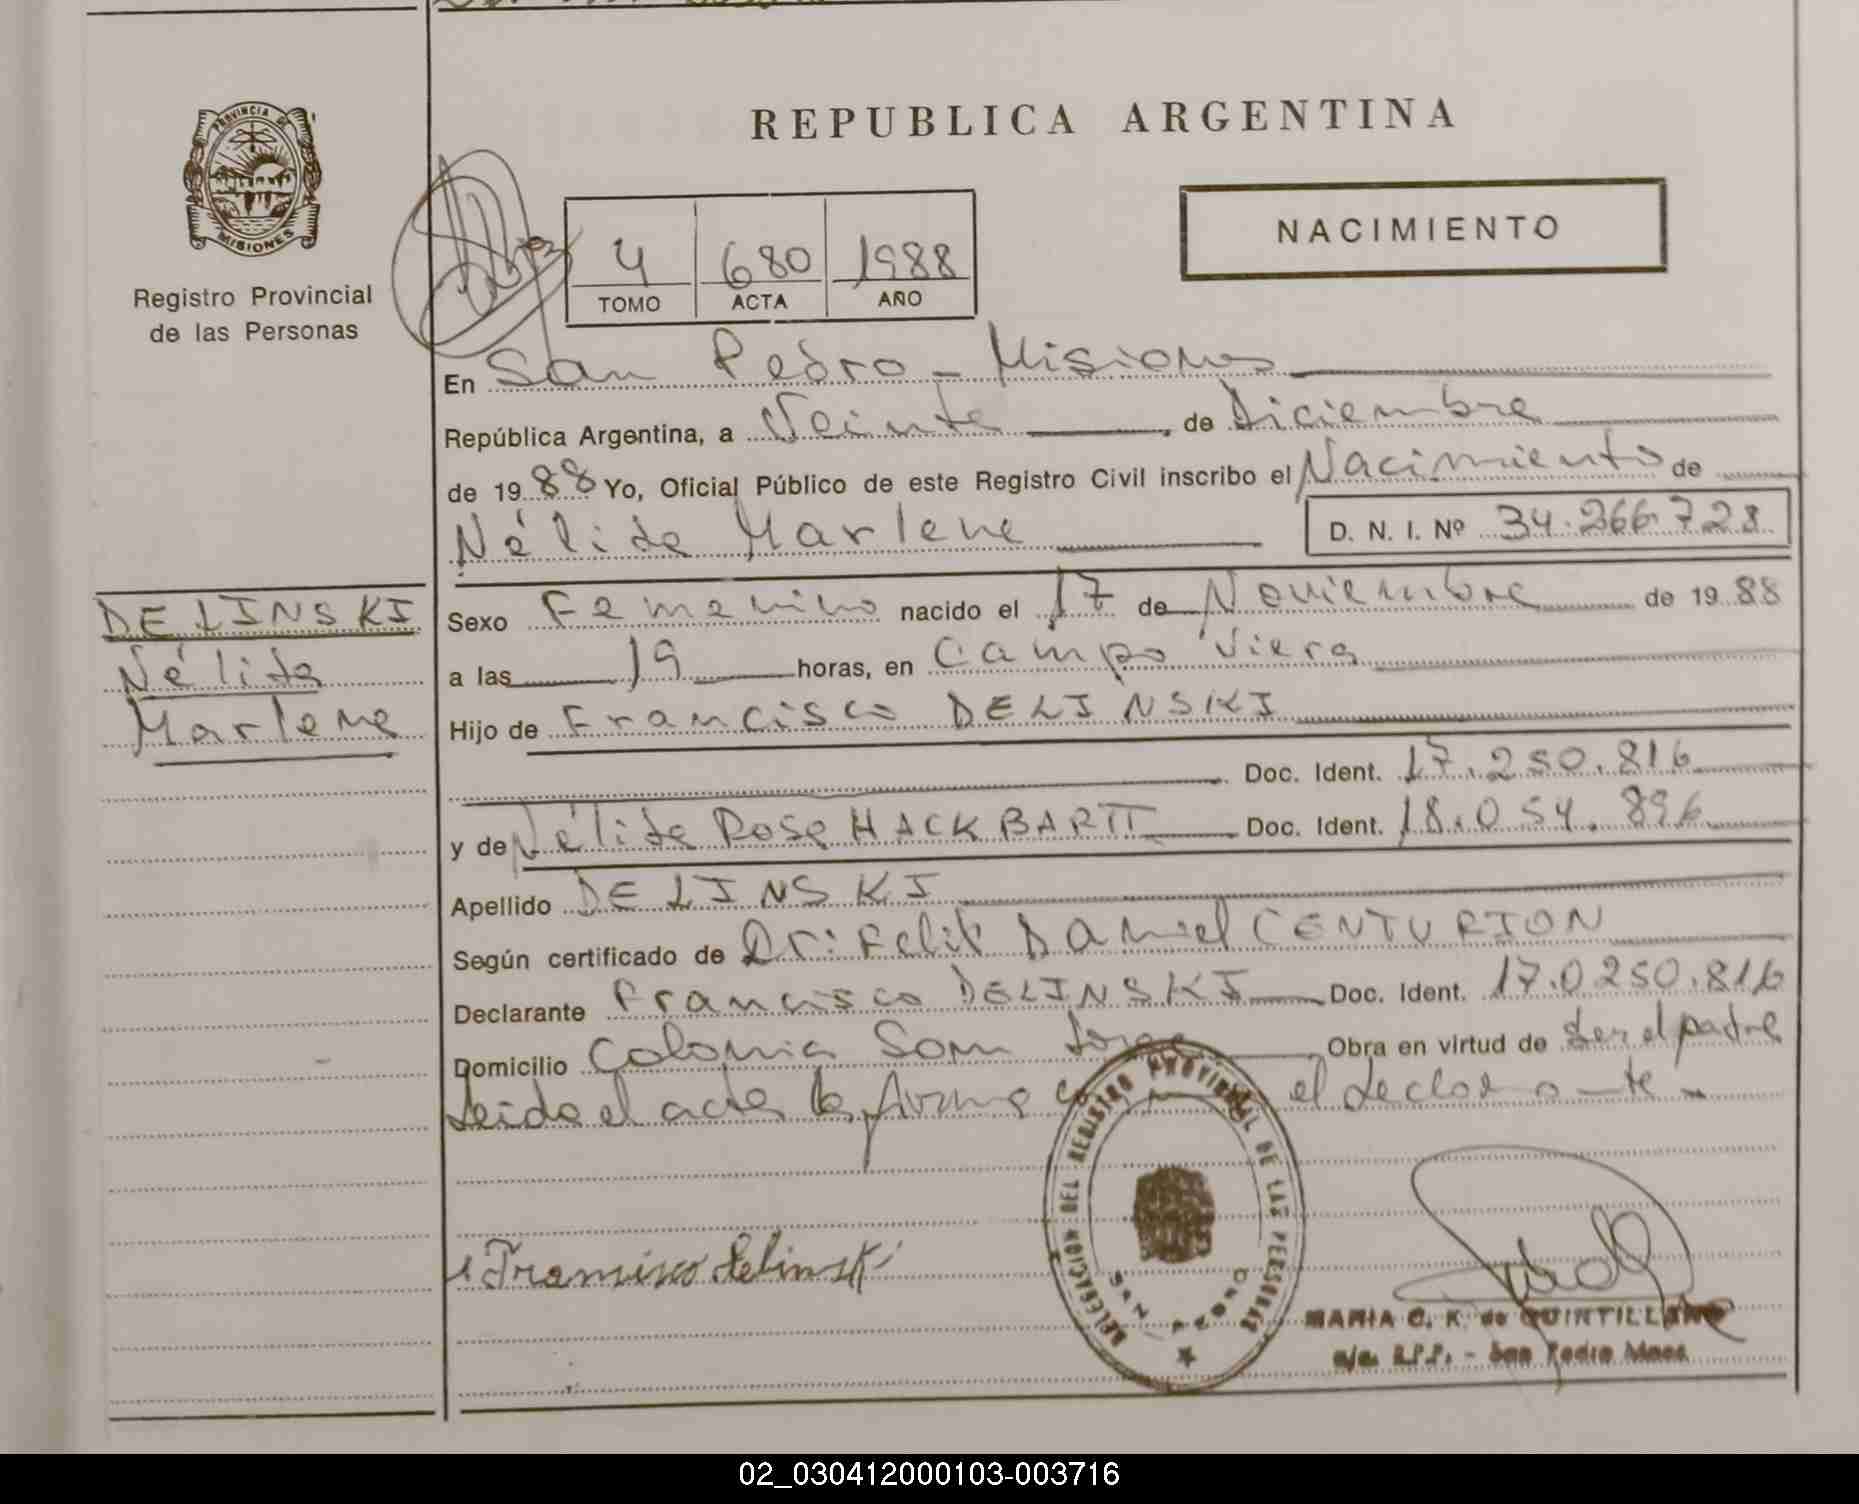 PROVINCIA DE
MISIONES
Registro Provincial
de las Personas
REPUBLICA ARGENTINA
NACIMIENTO
4 680 1988
TOMO ACTA AÑO
En San Pedro - Misiones
República Argentina, a Veinte de Diciembre
de 1988 Yo, Oficial Público de este Registro Civil inscribo el Nacimiento de
Nélida Marlene D. N. I. Nº 34.266.728
DELINSKI
Nélida
Marlene
Sexo Femenino nacido el 17 de Noviembre de 1988
a las 19 horas, en Campo Viera
Hijo de Francisco DELINSKI
Doc. Ident. 17.250.816
y de Nélida Rosa HACKBARTT Doc. Ident. 18.054.896
Apellido DELINSKI
Según certificado de Dr: Felix Daniel CENTURION
Declarante Francisco DELINSKI Doc. Ident. 17.0250.816
Domicilio Colonia San Jorge Obra en virtud de ser el padre
Leida el acta la firma el declarante
DELEGACION DEL REGISTRO PROVINCIAL DE LAS PERSONAS
SAN PEDRO
Francisco Delinski
MARIA C. K. de QUINTILLANO
a/c. R.P.P. - San Pedro Mnes.
02_030412000103-003716